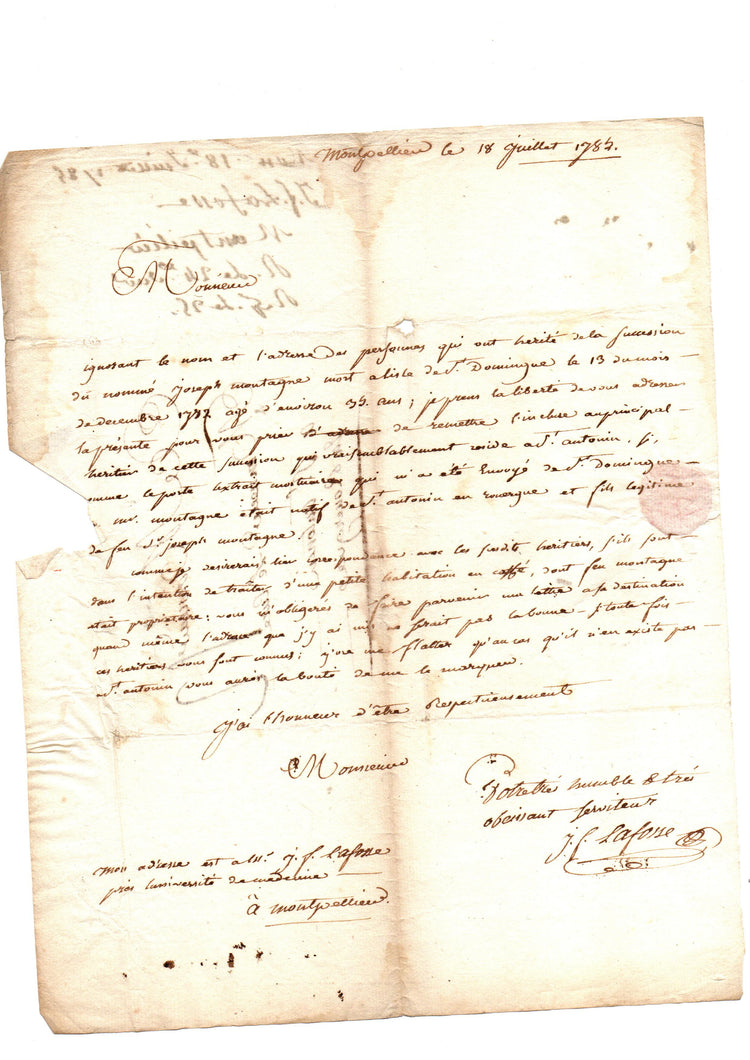 Montpellier le 18 Juillet 1785.
Monsieur
ignorant le nom et l'adresse des personnes qui ont herité dela succession
du nommé Joseph montagne mort a lisle de St. Domingue le 13 du mois
de decembre 1782 agé d'environ 35 ans; je prens la liberté de vous adresser
la présente pour vous prier de remettre l'incluse au principal
heritier de cette succession qui vraisemblablement reside a St. antonin, si,
comme le porte extrait mortuaire qui m'a été Envoyé de St. Domingue
mr. montagne était natif de St. antonin en rouergue et fils legitime
de feu Sr. joseph montagne.
comme je desirerais lier correspondance avec les susdits heritiers, s'ils sont
dans l'intention de traiter d'une petite habitation en caffé, dont feu montagne
était proprietaire; vous m'obligeres de faire parvenir ma lettre a sa destination
quand même l'adresse que j'y ai mis ne serait pas la bonne si toute fois
ces heritiers vous sont connus; j'ose me flatter qu'au cas qu'il n'en existe pas
a St. antonin vous aurés la bonté de me le marquer.
J'ai l'honneur d'être Respectueusement
Monsieur
Votre trés humble & trés
obeissant serviteur
J. f. Lafosse
mon adresse est a Mr. J. f. Lafosse
prés l'université de medecine
à montpellier